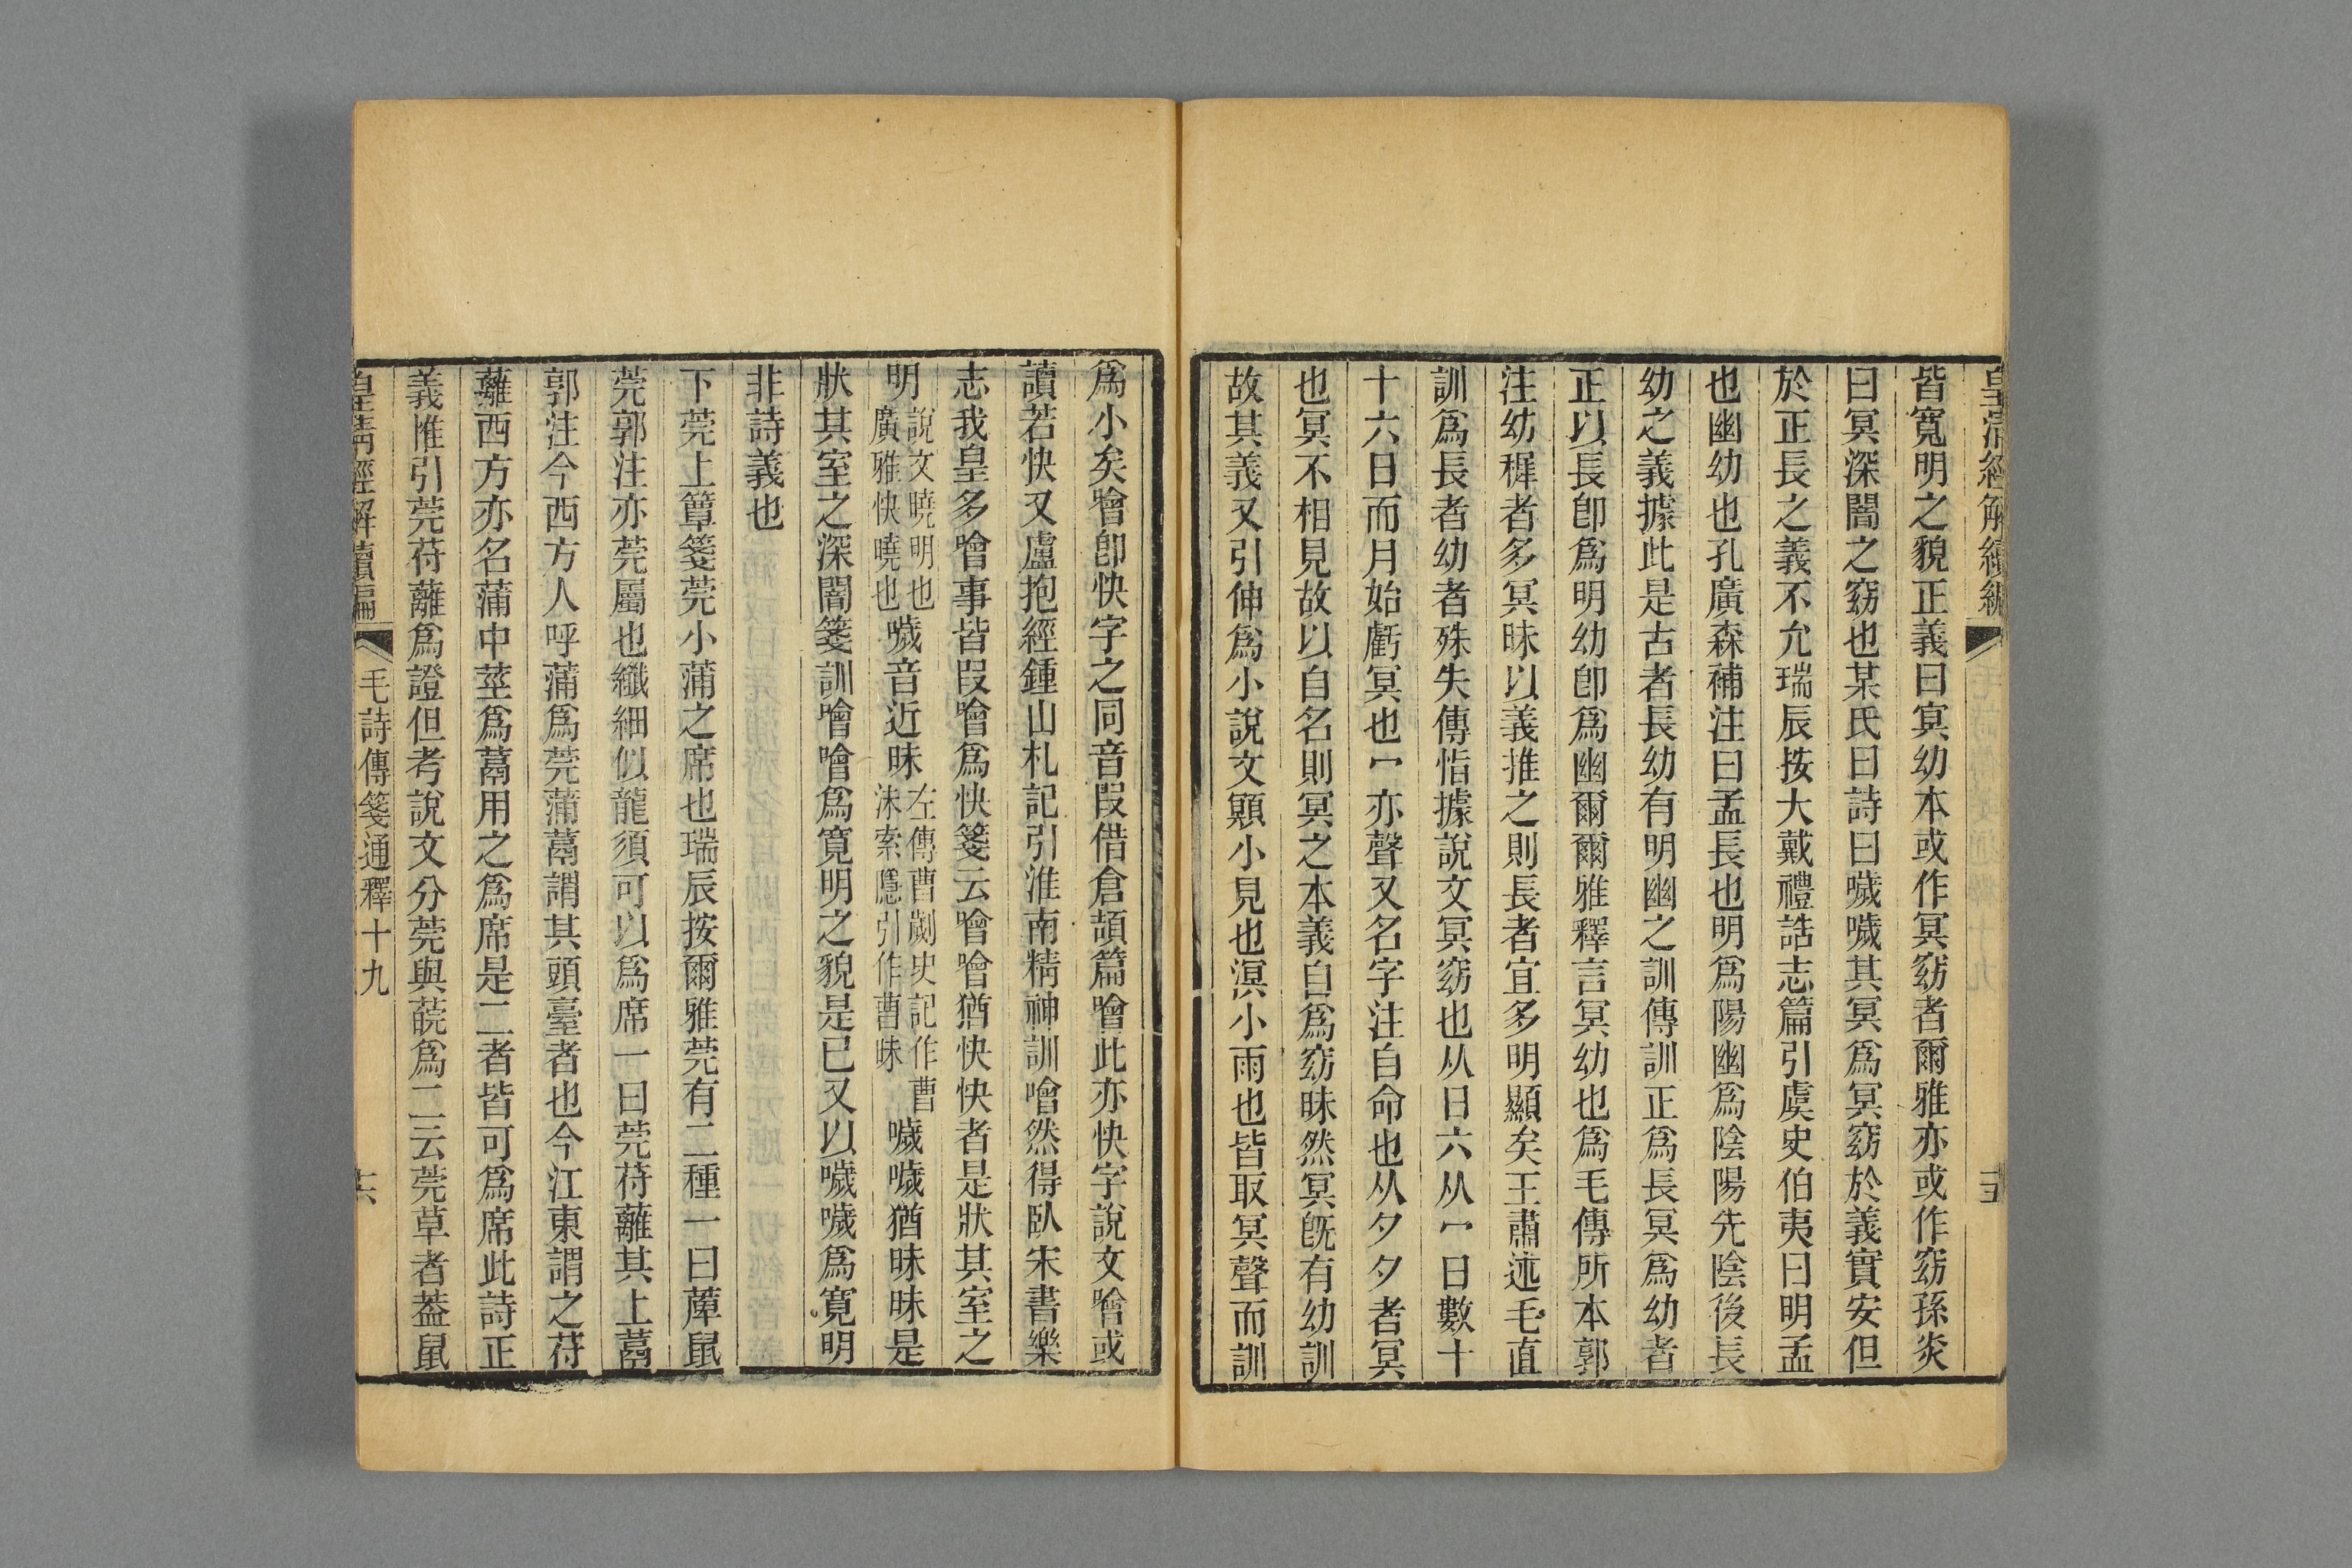 皇清經解續編
十五
皆寬明之貌正義曰冥幼本或作冥窈者爾雅亦或作窈孫炎
曰冥深闇之窈也某氏曰詩曰噦噦其冥爲冥窈於義實安但
於正長之義不允瑞辰按大戴禮誥志篇引虞史伯夷曰明孟
也幽幼也孔廣森補注曰孟長也明爲陽幽爲陰陽先陰後長
幼之義據此是古者長幼有明幽之訓傳訓正爲長冥爲幼者
正以長卽爲明幼卽爲幽爾爾雅釋言冥幼也爲毛傳所本郭
注幼穉者多冥昧以義推之則長者宜多明顯矣王肅述毛直
訓爲長者幼者殊失傳恉據說文冥窈也从日六从冖日數十
十六日而月始虧冥也冖亦聲又名字注自命也从夕夕者冥
也冥不相見故以自名則冥之本義自爲窈昧然冥旣有幼訓
故其義又引伸爲小說文顯小見也溟小雨也皆取冥聲而訓
爲小矣噲卽快字之同音叚借倉頡篇噲此亦快字說文噲或
讀若快又盧抱經鍾山札記引淮南精神訓噲然得臥宋書樂
志我皇多噲事皆叚噲爲快箋云噲噲猶快快者是狀其室之
明說文曉明也廣雅快曉也噦音近昧左傳曹劌史記作曹沬索隱引作曹昧噦噦猶昧昧是
狀其室之深闇箋訓噲噲爲寬明之貌是已又以噦噦爲寬明
非詩義也
下莞上簟箋莞小蒲之席也瑞辰按爾雅莞有二種一曰藆鼠
莞郭注亦莞屬也纖細似龍須可以爲席一曰莞苻蘺其上蒚
郭注今西方人呼蒲爲莞蒲蒚謂其頭臺者也今江東謂之苻
蘺西方亦名蒲中莖爲蒚用之爲席是二者皆可爲席此詩正
義惟引莞苻蘺爲證但考說文分莞與䓝爲二云莞草者葢鼠
皇清經解續編
毛詩傳箋通釋十九
十六